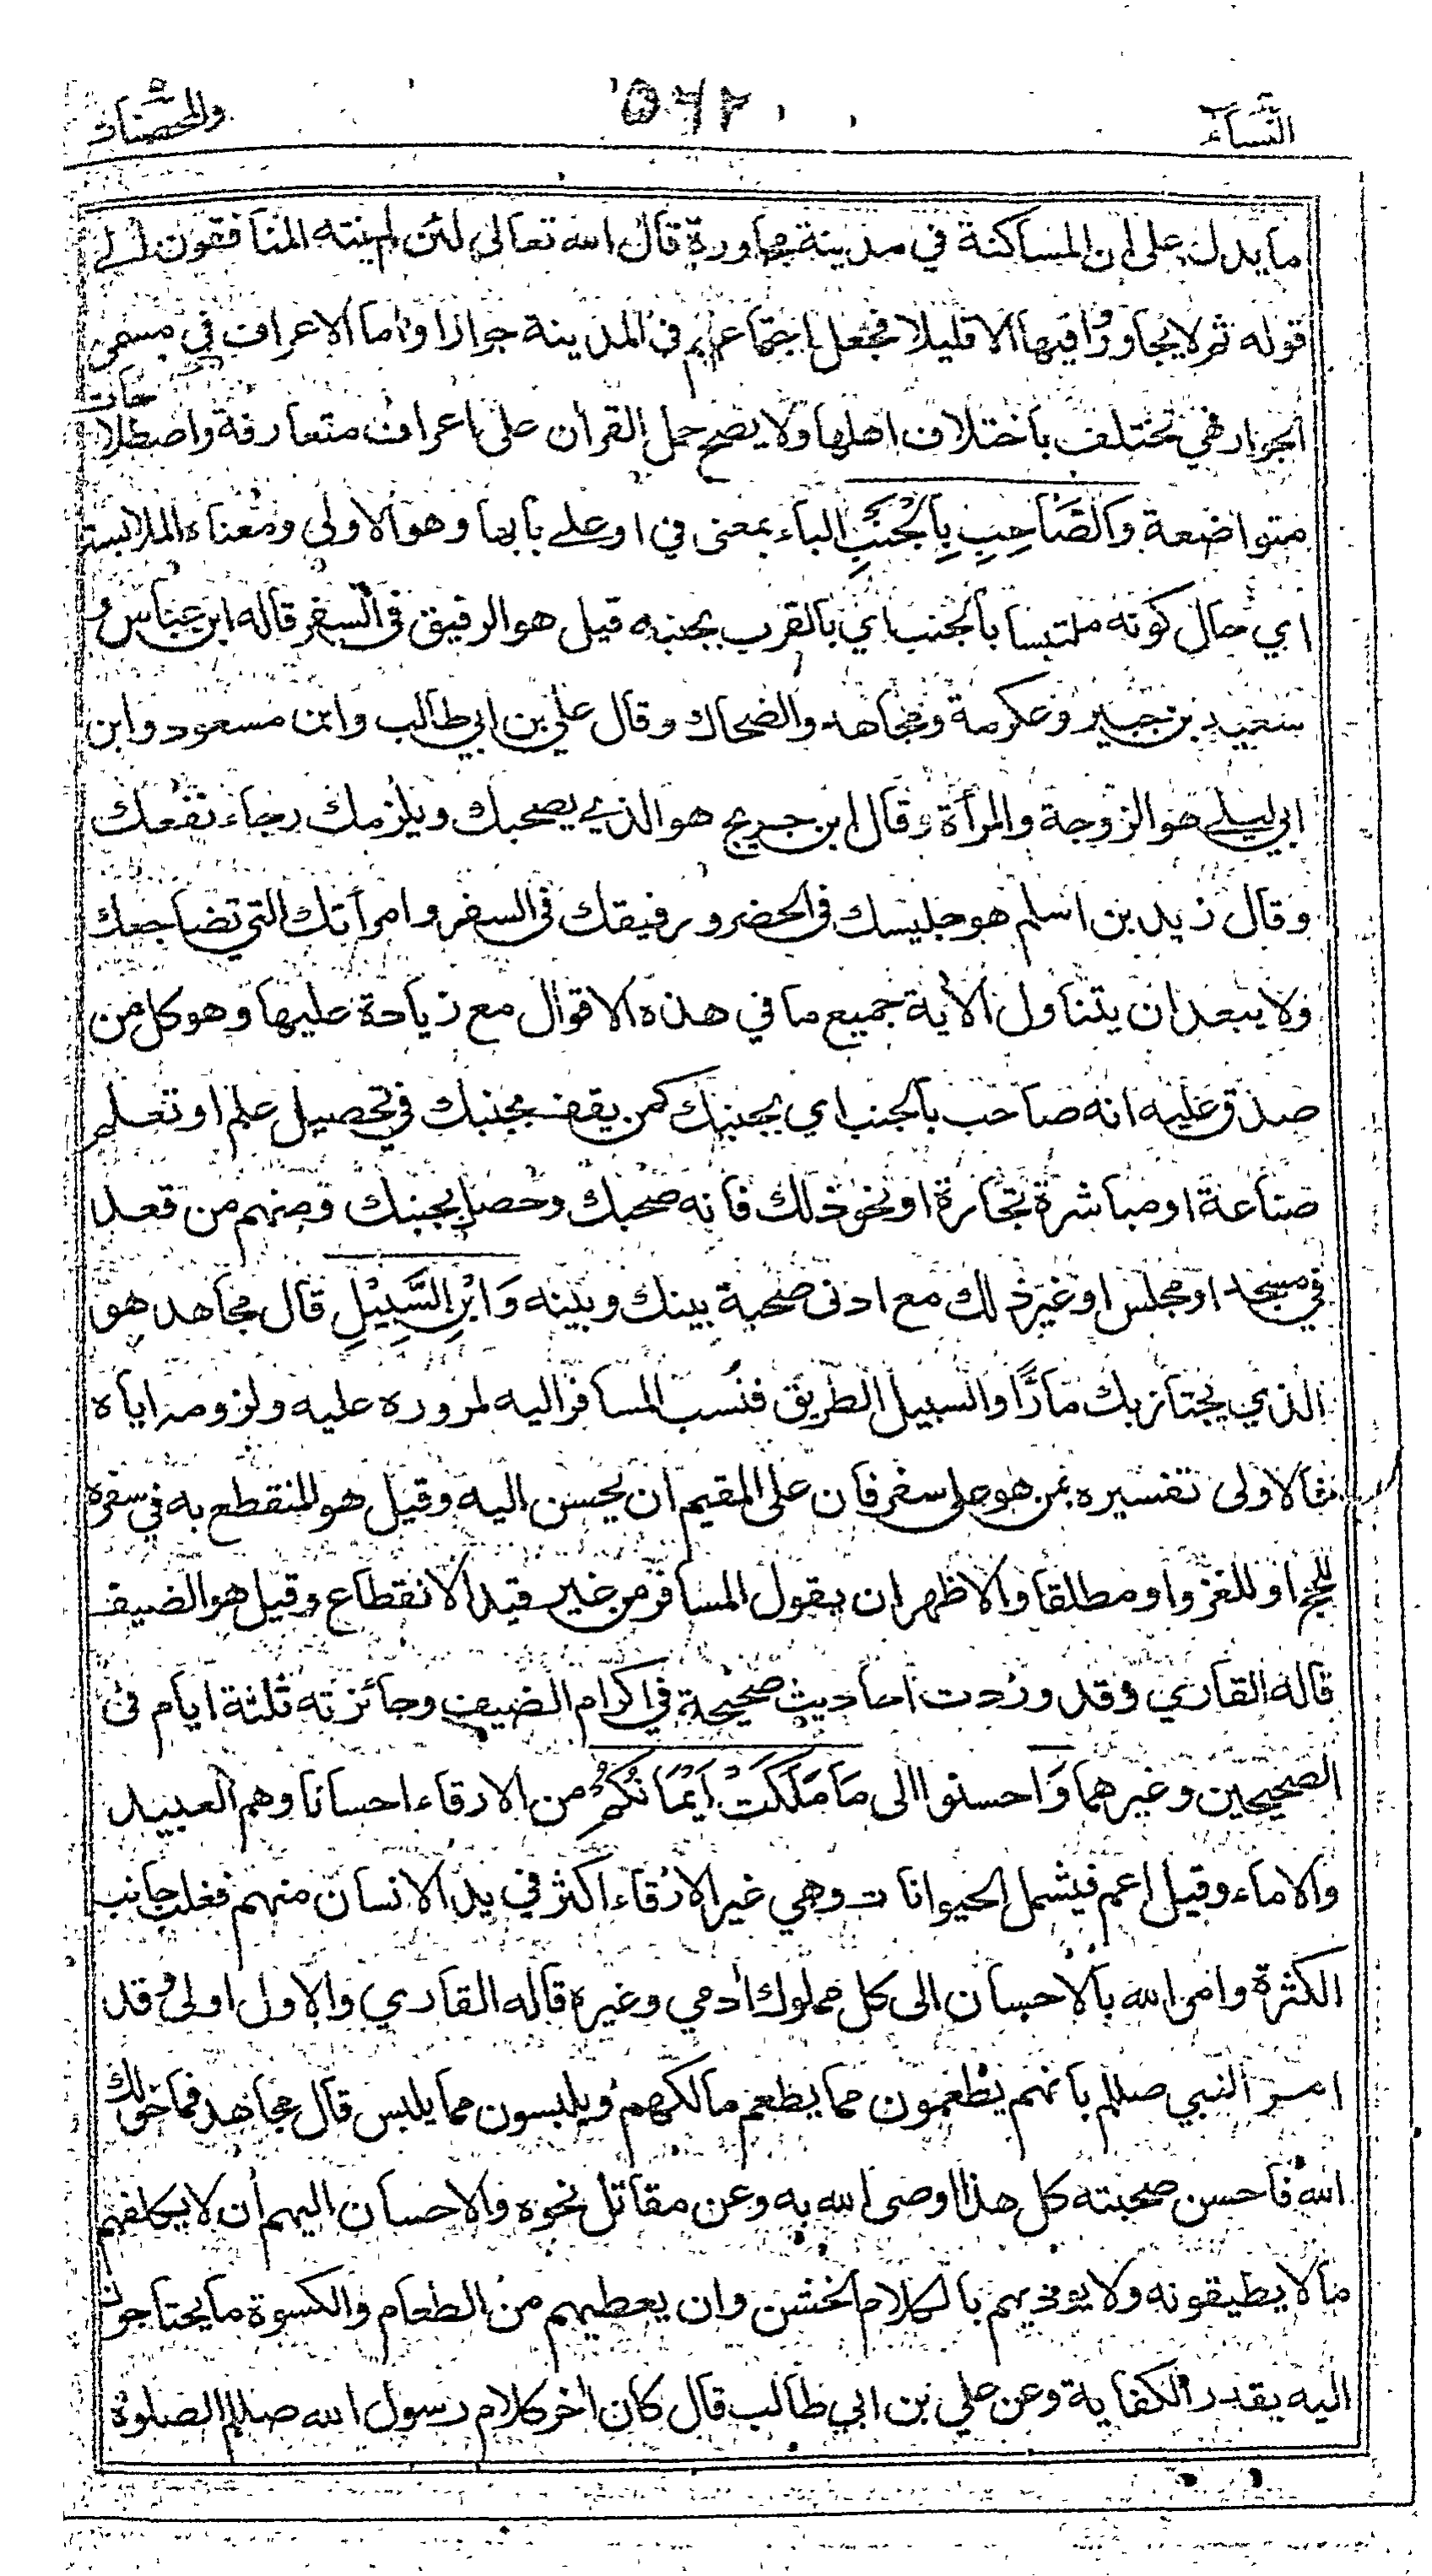 النساء
٥٦٢
والمحصنات
ما يدل على ان المساكنة في مدينة مجاورة قال الله تعالى لئن لم ينته المنافقون الے
قوله ثم لا يجاورونك فيها الا قليلا فجعل اجتماعهم في المدينة جوارا واما الاعراف في مسمى
الجوار فهي تختلف باختلاف اهلها ولا يصح حمل القرآن على اعراف متعارفة واصطلاحات
متواضعة وَالصَّاحِبِ بِالْجَنْبِ الباء بمعنى في او علے بابها وهو الاولى ومعناه الملابسة
اي حال كونه ملتبسا بالجنب اي بالقرب بجنبه قيل هو الرفيق في السفر قاله ابن عباس و
سعيد بن جبير وعكرمة ومجاهد والضحاك وقال علي بن ابي طالب وابن مسعود وابن
ابي ليلے هو الزوجة والمرأة وقال ابن جريج هو الذي يصحبك ويلزمك رجاء نفعك
وقال زيد بن اسلم هو جليسك في الحضر ورفيقك في السفر وامرأتك التي تضاجعك
ولا يبعد ان يتناول الآية جميع ما في هذه الاقوال مع زيادة عليها وهو كل من
صدق عليه انه صاحب بالجنب اي بجنبك كمن يقف بجنبك في تحصيل علم او تعلم
صناعة او مباشرة تجارة او نحو ذلك فانه صحبك وحصل بجنبك ومنهم من قعد
في مسجد او مجلس او غير ذلك مع ادنى صحبة بينك وبينه وَابْنِ السَّبِيْلِ قال مجاهد هو
الذي يجتاز بك مارًّا والسبيل الطريق فنسب المسافر اليه لمروره عليه ولزومه اياه
فالاولى تفسيره بمن هو على سفر فان على المقيم ان يحسن اليه وقيل هو المنقطع به في سفره
للحج او للغزو او مطلقا والاظهر ان يقول المسافر من غير قيد الانقطاع وقيل هو الضيف
قاله القاري وقد وردت احاديث صحيحة في اكرام الضيف وجائزته ثلثة ايام في
الصحيحين وغيرهما وَ احسنوا الى مَا مَلَكَتْ اَيْمَانُكُمْ من الارقاء احسانا وهم العبيد
والاماء وقيل اعم فيشمل الحيوانات وهي غير الارقاء اكثر في يد الانسان منهم فغلب جانب
الكثرة وامر الله بالاحسان الى كل مملوك آدمي وغيره قاله القاري والاول اولى وقد
امر النبي صللم بانهم يطعمون مما يطعم مالكهم ويلبسون مما يلبس قال مجاهد فما خولك
الله فاحسن صحبته كل هذا اوصى الله به وعن مقاتل نحوه والاحسان اليهم أن لا يكلفهم
ما لا يطيقونه ولا يوذيهم بالكلام الخشن وان يعطيهم من الطعام والكسوة ما يحتاجون
اليه بقدر الكفاية وعن علي بن ابي طالب قال كان آخر كلام رسول الله صللم الصلوة